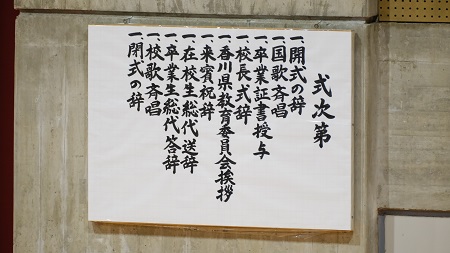 式次第
一、開式の辞
一、国歌斉唱
一、卒業証書授与
一、校長式辞
一、香川県教育委員会挨拶
一、来賓祝辞
一、在校生総代送辞
一、卒業生総代答辞
一、校歌斉唱
一、閉式の辞